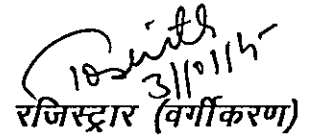 31/01/15
रजिस्ट्रार (वर्गीकरण)